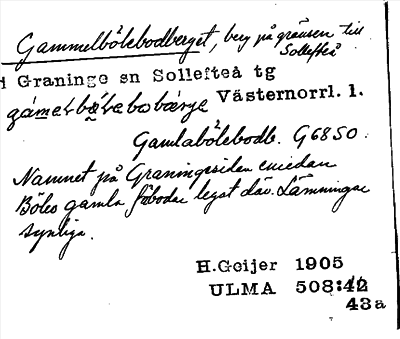 Gammelbölebodberget, berg på gränsen till
Sollefteå
i Graninge sn Sollefteå tg
Västernorrl. l.
Gamlabölebodb. G6850.
Namnet på Graningesidan emedan
Böles gamla fäbodar legat där. Lämningar
synliga.
H.Geijer 1905
ULMA 508:42
43a